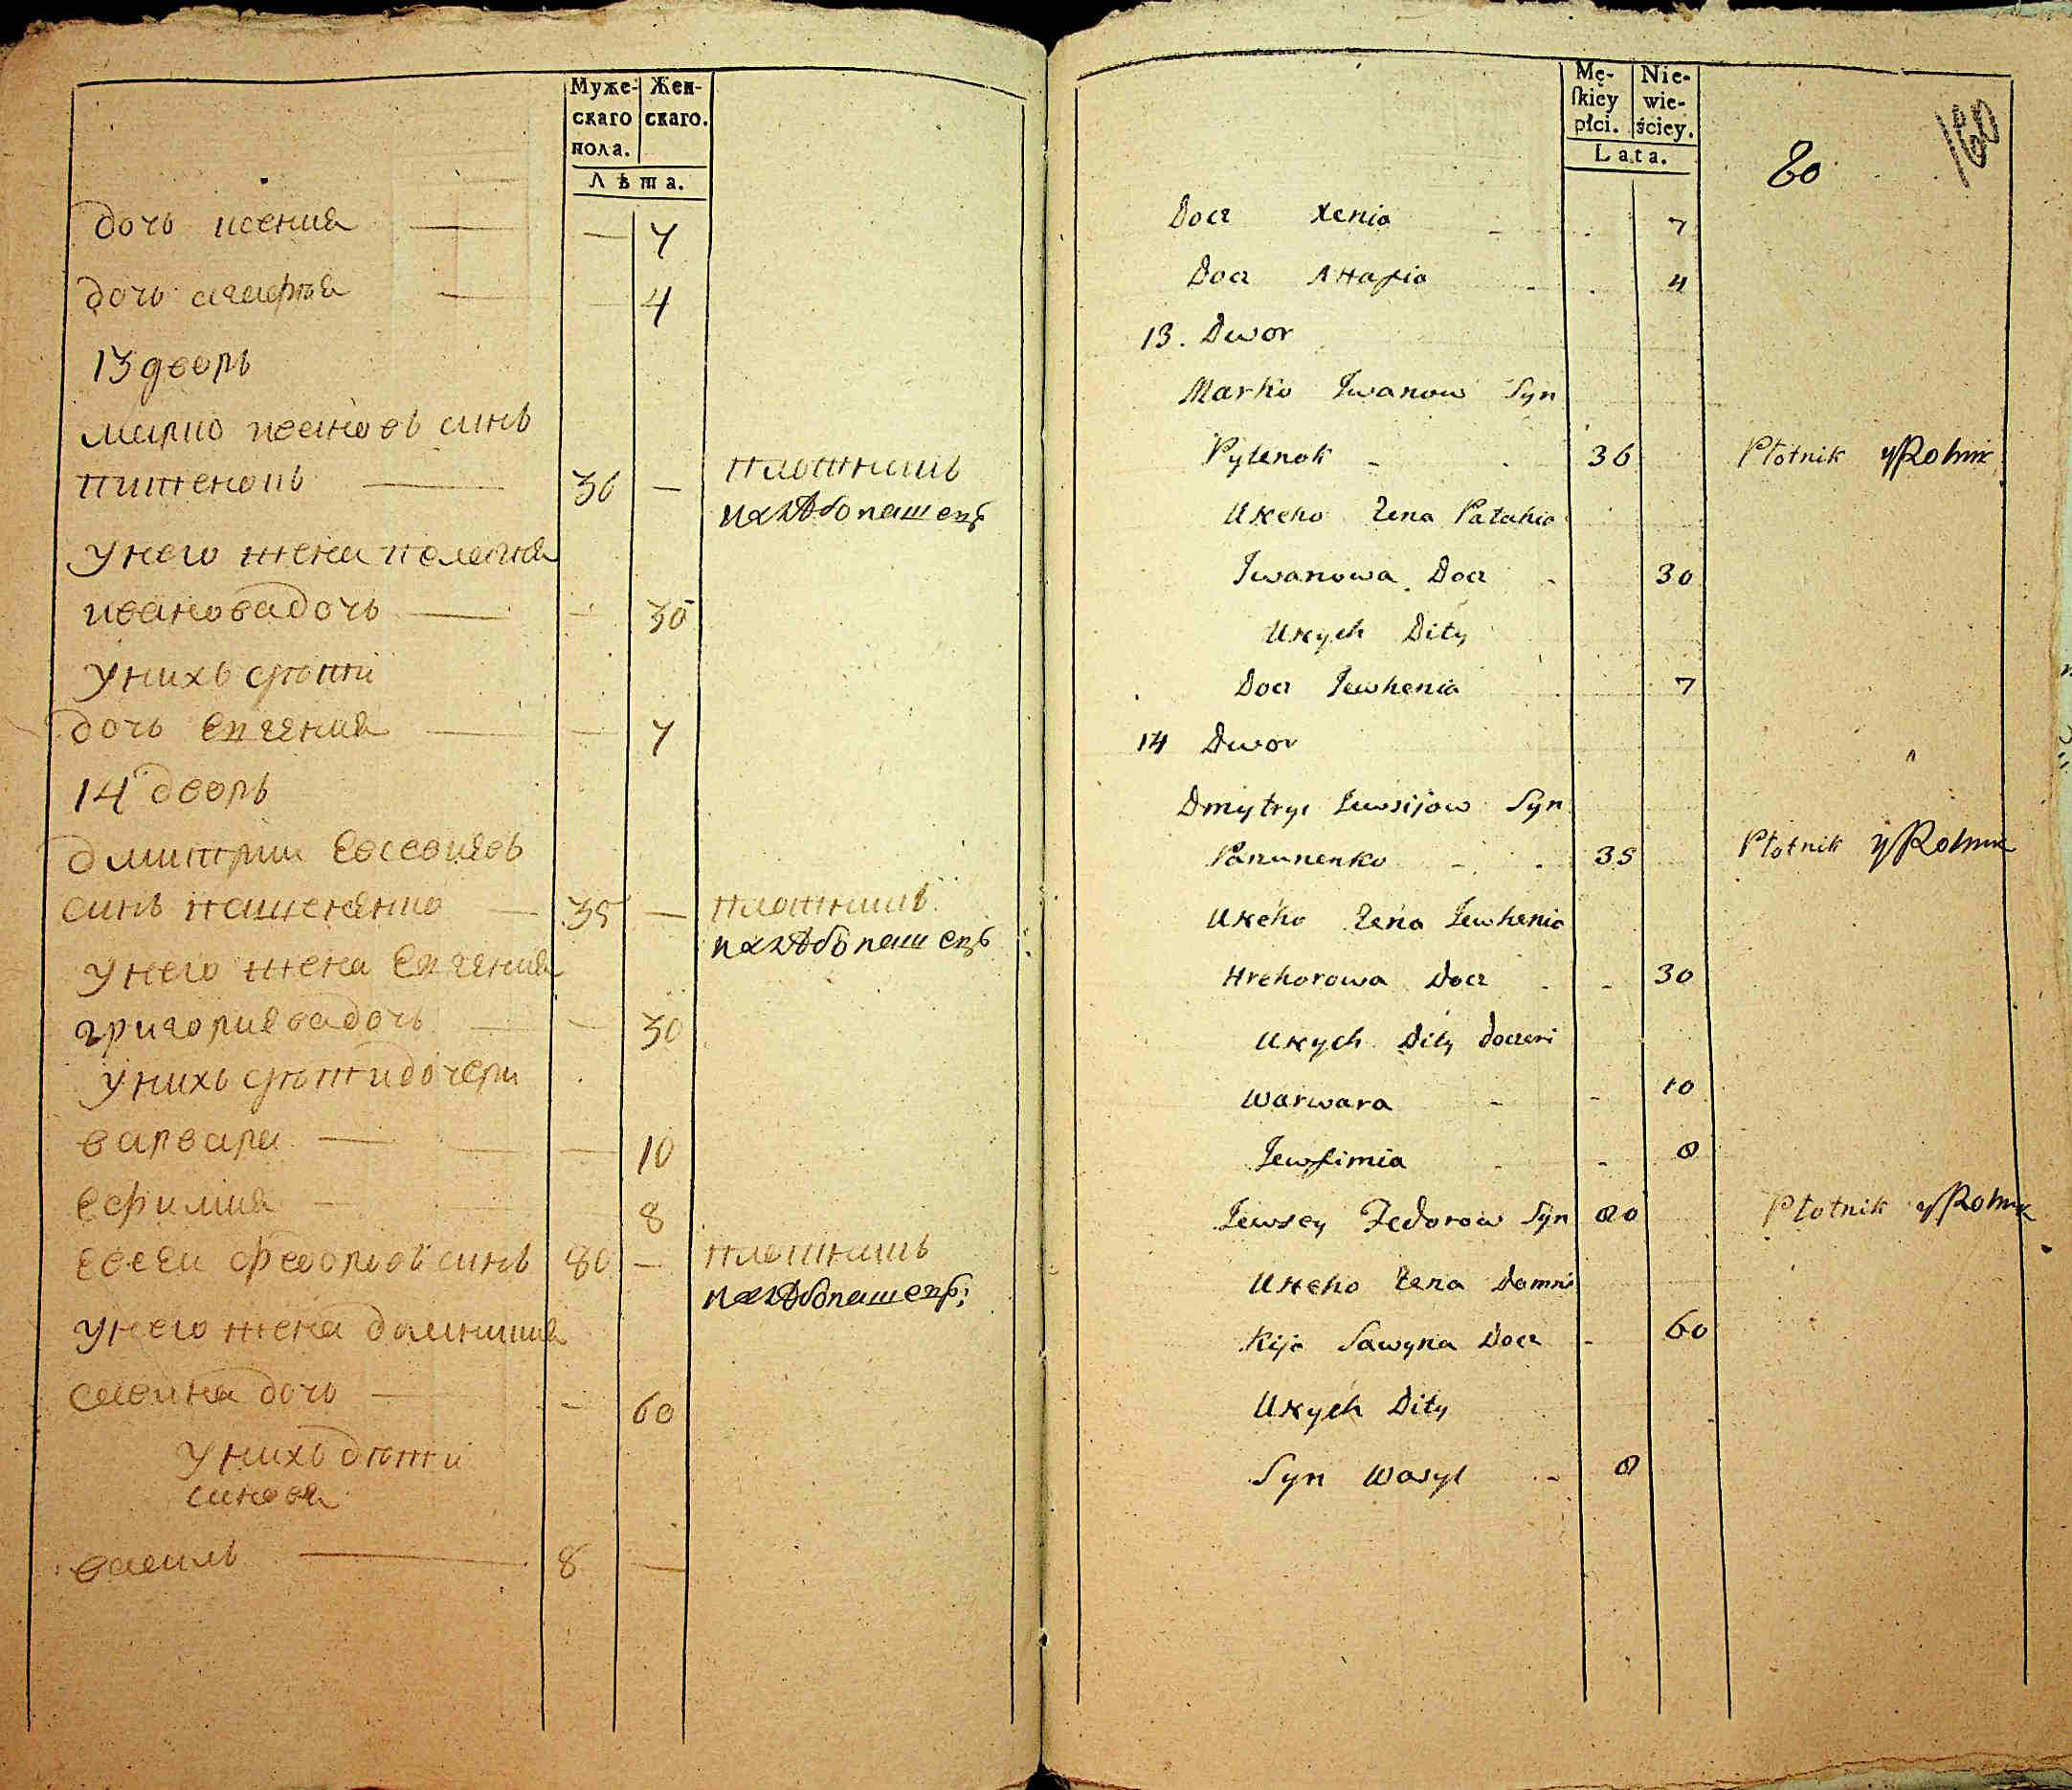 Муже-
скаго
пола.
Жен-
скаго.
Лѣта.
дочь ксения — — 7
дочь агафия — — 4
13 дворъ
марко ивановъ синъ
питенокъ — 36 — плотникъ
и хлѣбопашецъ
у него жена пелагия
иванова дочь — — 30
у нихъ дѣти
дочь евгения — — 7
14 дворъ
дмитрии евсевиевъ
синъ — 35 — плотникъ
и хлѣбопашецъ
у него жена евгения
григориева дочь — — 30
у нихъ дѣти дочери
варвара — — 10
ефимия — 8
евсеи федоровъ синъ 80 — плотникъ
и хлѣбопашецъ
у него жена домникия
савина дочь — - 60
у нихъ дѣти
синовя
василь — 8 —
Mę-
skiey
płci.
Nie-
wie-
ściey.
Lata.
80
160
Docz Xenia - . 7
Docz Ahafia - . 4
13. Dwor
Marko Iwanow Syn
Pytenok - . 36 Płotnik y Rolnik
Uneho Zena Palahia
Iwanowa Docz - 30
Unych Dity
Docz Jewhenia 7
14 Dwor
Dmytryi Jewsijow Syn
Pananenko - . 35 Płotnik y Rolnik
Uneho Zena Jewhenia
Hrehorowa Docz - - 30
Unych Dity doczeri
Warwara - - 10
Jewfimia - - 8
Jewsey Fedorow Syn 80 Płotnik y Rolnik
Uneho Zena Domni
Kija Sawyna Docz - 60
Unych Dity
Syn Wasyl - 8